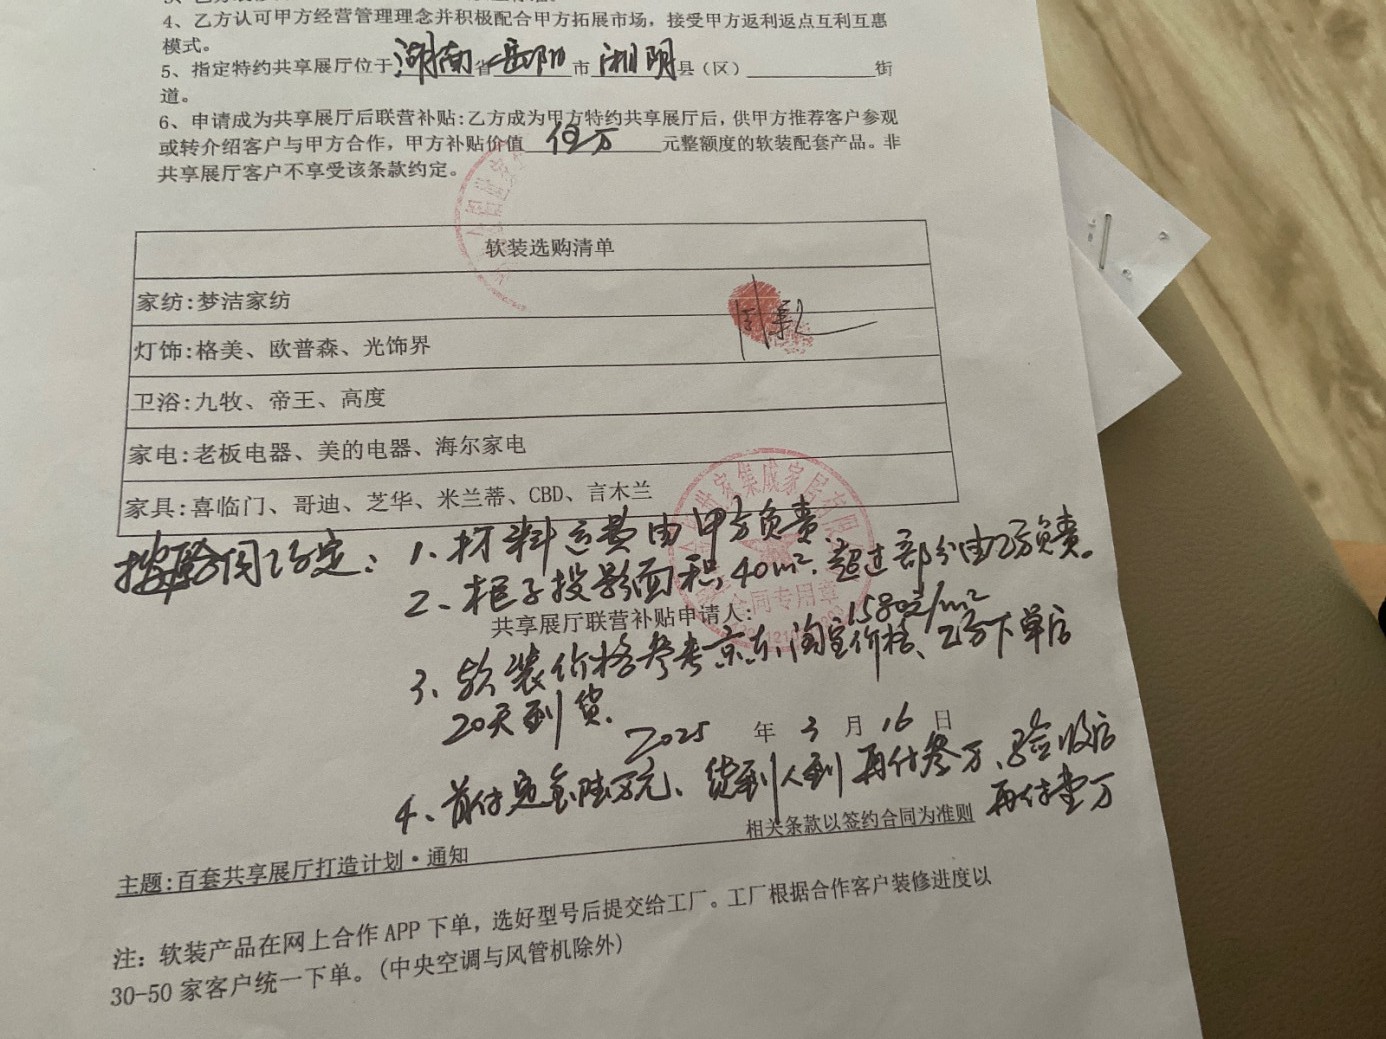 4、乙方认可甲方经营管理理念并积极配合甲方拓展市场，接受甲方返利返点互利互惠
模式。
5、指定特约共享展厅位于湖南省岳阳市湘阴县（区）__________街
道。
6、申请成为共享展厅后联营补贴:乙方成为甲方特约共享展厅后，供甲方推荐客户参观
或转介绍客户与甲方合作，甲方补贴价值 伍万 元整额度的软装配套产品。非
共享展厅客户不享受该条款约定。
软装选购清单
家纺:梦洁家纺
灯饰:格美、欧普森、光饰界
卫浴:九牧、帝王、高度
家电:老板电器、美的电器、海尔家电
家具:喜临门、哥迪、芝华、米兰蒂、CBD、言木兰
合同约定：1、材料运费由甲方负责.
2、柜子投影面积40m². 超过部分由乙方负责。
共享展厅联营补贴申请人:
1580元/m²
3、软装价格参考京东,淘宝价格、乙方下单后
20天到货.
2025 年 3 月 16 日
4、首付定金陆万元、货到人到再付叁万、验收后
再付壹万
相关条款以签约合同为准则
主题:百套共享展厅打造计划·通知
注：软装产品在网上合作APP下单，选好型号后提交给工厂。工厂根据合作客户装修进度以
30-50家客户统一下单。(中央空调与风管机除外)
家集成家居有限
合同专用章